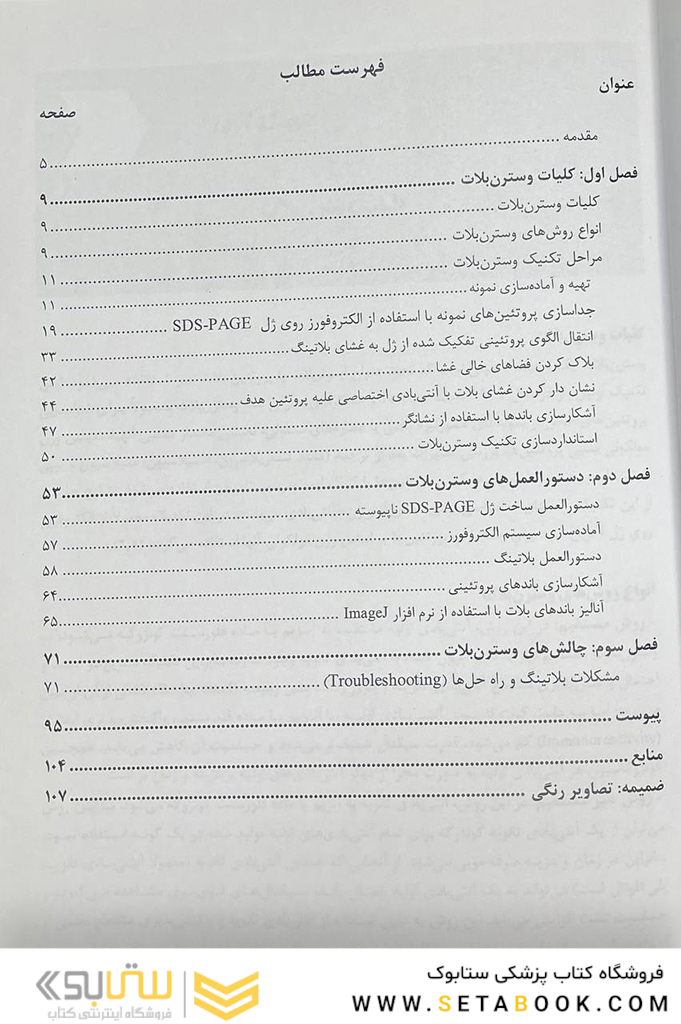 فهرست مطالب
عنوان
صفحه
مقدمه ........ ۵
فصل اول: کلیات وسترن‌بلات ........ ۹
کلیات وسترن‌بلات ........ ۹
انواع روش‌های وسترن‌بلات ........ ۹
مراحل تکنیک وسترن‌بلات ........ ۱۱
تهیه و آماده‌سازی نمونه ........ ۱۱
جداسازی پروتئین‌های نمونه با استفاده از الکتروفورز روی ژل SDS-PAGE ........ ۱۹
انتقال الگوی پروتئینی تفکیک شده از ژل به غشای بلاتینگ ........ ۳۳
بلاک کردن فضاهای خالی غشا ........ ۴۲
نشان دار کردن غشای بلات با آنتی‌بادی اختصاصی علیه پروتئین هدف ........ ۴۴
آشکارسازی باندها با استفاده از نشانگر ........ ۴۷
استانداردسازی تکنیک وسترن‌بلات ........ ۵۰
فصل دوم: دستورالعمل‌های وسترن‌بلات ........ ۵۳
دستورالعمل ساخت ژل SDS-PAGE ناپیوسته ........ ۵۳
آماده‌سازی سیستم الکتروفورز ........ ۵۷
دستورالعمل بلاتینگ ........ ۵۸
آشکارسازی باندهای پروتئینی ........ ۶۴
آنالیز باندهای بلات با استفاده از نرم افزار ImageJ ........ ۶۵
فصل سوم: چالش‌های وسترن‌بلات ........ ۷۱
مشکلات بلاتینگ و راه حل‌ها (Troubleshooting) ........ ۷۱
پیوست ........ ۹۵
منابع ........ ۱۰۴
ضمیمه: تصاویر رنگی ........ ۱۰۷
فروشگاه کتاب پزشکی ستابوک
WWW.SETABOOK.COM
ستابوک
فروشگاه اینترنتی کتاب